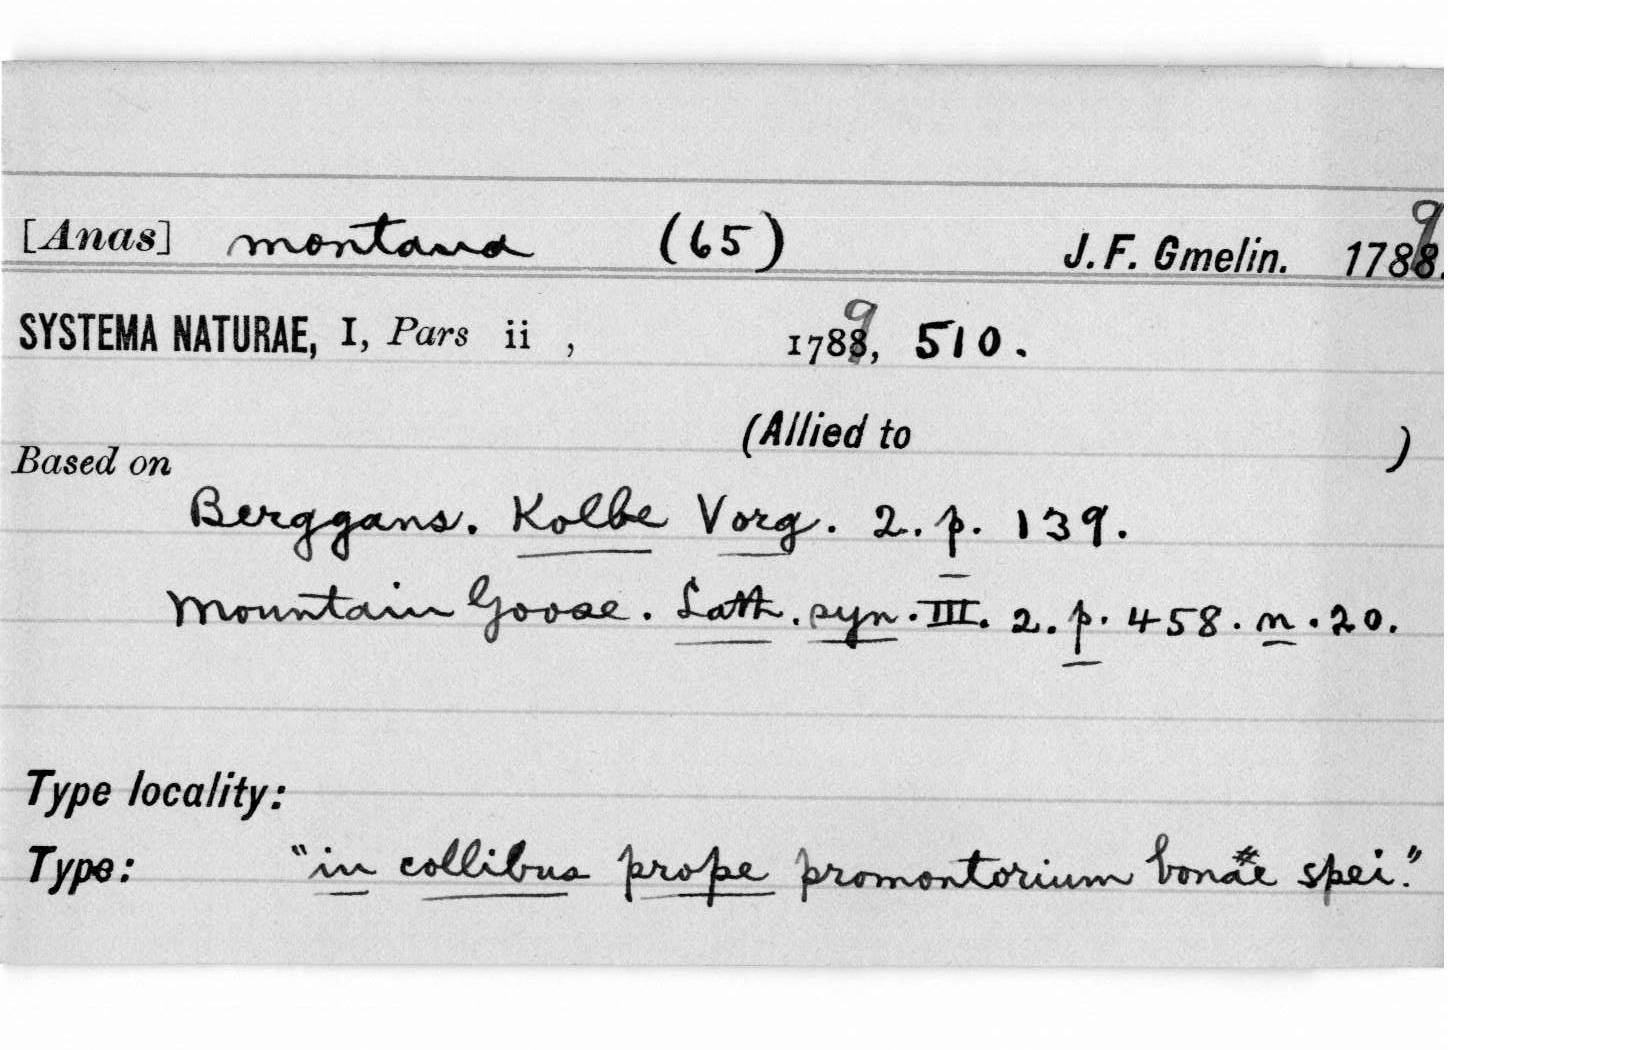 [Anas] montana (65) J. F. Gmelin. 1789.
SYSTEMA NATURAE, I, Pars ii , 1789, 510.
(Allied to )
Based on
Berggans. Kolbe Vorg. 2. p. 139.
Mountain Goose. Lath. syn. III. 2. p. 458. n. 20.
Type locality:
Type: "in collibus prope promontorium bonae spei."